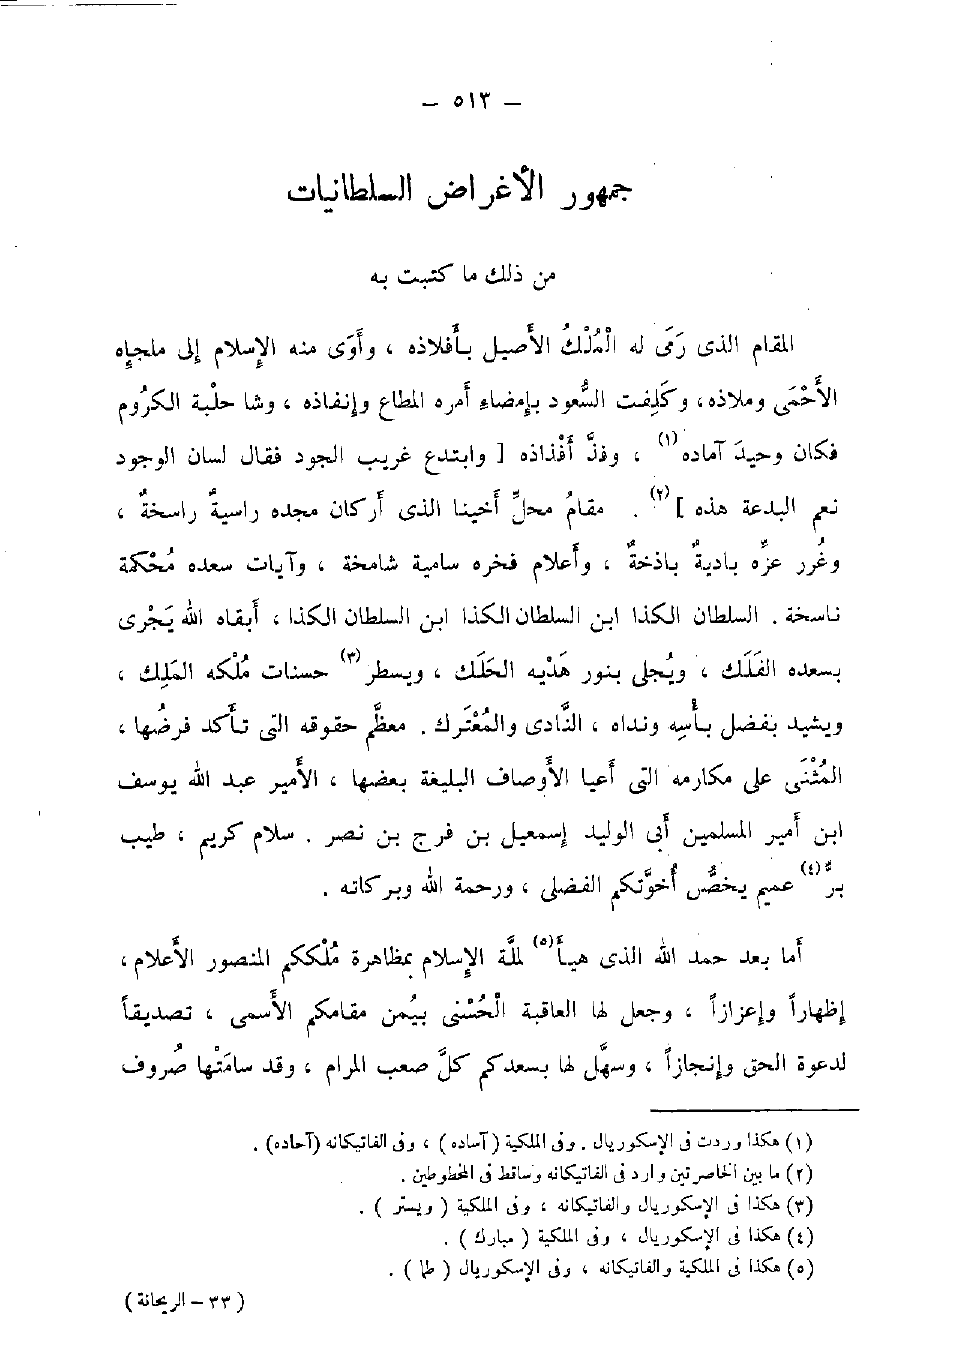 — ٥١٣ —
جمهور الأغراض السلطانيات
من ذلك ما كتبت به
المقام الذى رَمَى له الْمُلْكُ الأصيل بأفلاذه ، وأَوَى منه الإسلام إلى ملجإه
الأَحْمَى وملاذه، وكَلِفت السُّعود بإمضاءِ أمره المطاع وإنفاذه ، وشا حلْبة الكرُوم
فكان وحيدَ آماده (١) ، وفذَّ أَفْذاذه [ وابتدع غريب الجود فقال لسان الوجود
نعم البدعة هذه ] (٢) . مقامُ محلِّ أخينا الذى أركان مجده راسيةٌ راسخةٌ ،
وغُرر عزِّه باديةٌ باذخةٌ ، وأعلام فخره سامية شامخة ، وآيات سعده مُحْكمة
ناسخة . السلطان الكذا ابن السلطان الكذا ابن السلطان الكذا ، أبقاه الله يَجْرى
بسعده الفَلَك ، ويُجلى بنور هَدْيه الحَلَك ، ويسطر (٣) حسنات مُلْكه المَلِك ،
ويشيد بفضل بأْسِه ونداه ، النَّادى والمُعْتَرك . معظِّم حقوقه التى تأكد فرضُها ،
المُثْنَى على مكارمه التى أعيا الأوصاف البليغة بعضها ، الأمير عبد الله يوسف
ابن أمير المسلمين أبى الوليد إسمعيل بن فرج بن نصر . سلام كريم ، طيب
برٌّ (٤) عميم يخصُّ أُخوَّتكم الفضلى ، ورحمة الله وبركاته .
أما بعد حمد الله الذى هيأ (٥) لملَّة الإسلام بمظاهرة مُلْككم المنصور الأعلام ،
إظهاراً وإعزازاً ، وجعل لها العاقبة الْحُسْنى بيُمن مقامكم الأسمى ، تصديقاً
لدعوة الحق وإنجازاً ، وسهَّل لها بسعدكم كلَّ صعب المرام ، وقد سامَتْها صُروف
(١) هكذا وردت فى الإسكوريال . وفى الملكية (آساده) ، وفى الفاتيكانه (آحاده) .
(٢) ما بين الخاصرتين وارد فى الفاتيكانه وساقط فى المخطوطين .
(٣) هكذا فى الإسكوريال والفاتيكانه ، وفى الملكية ( ويستر ) .
(٤) هكذا فى الإسكوريال ، وفى الملكية ( مبارك ) .
(٥) هكذا فى الملكية والفاتيكانه ، وفى الإسكوريال ( طما ) .
( ٣٣ – الريحانة )